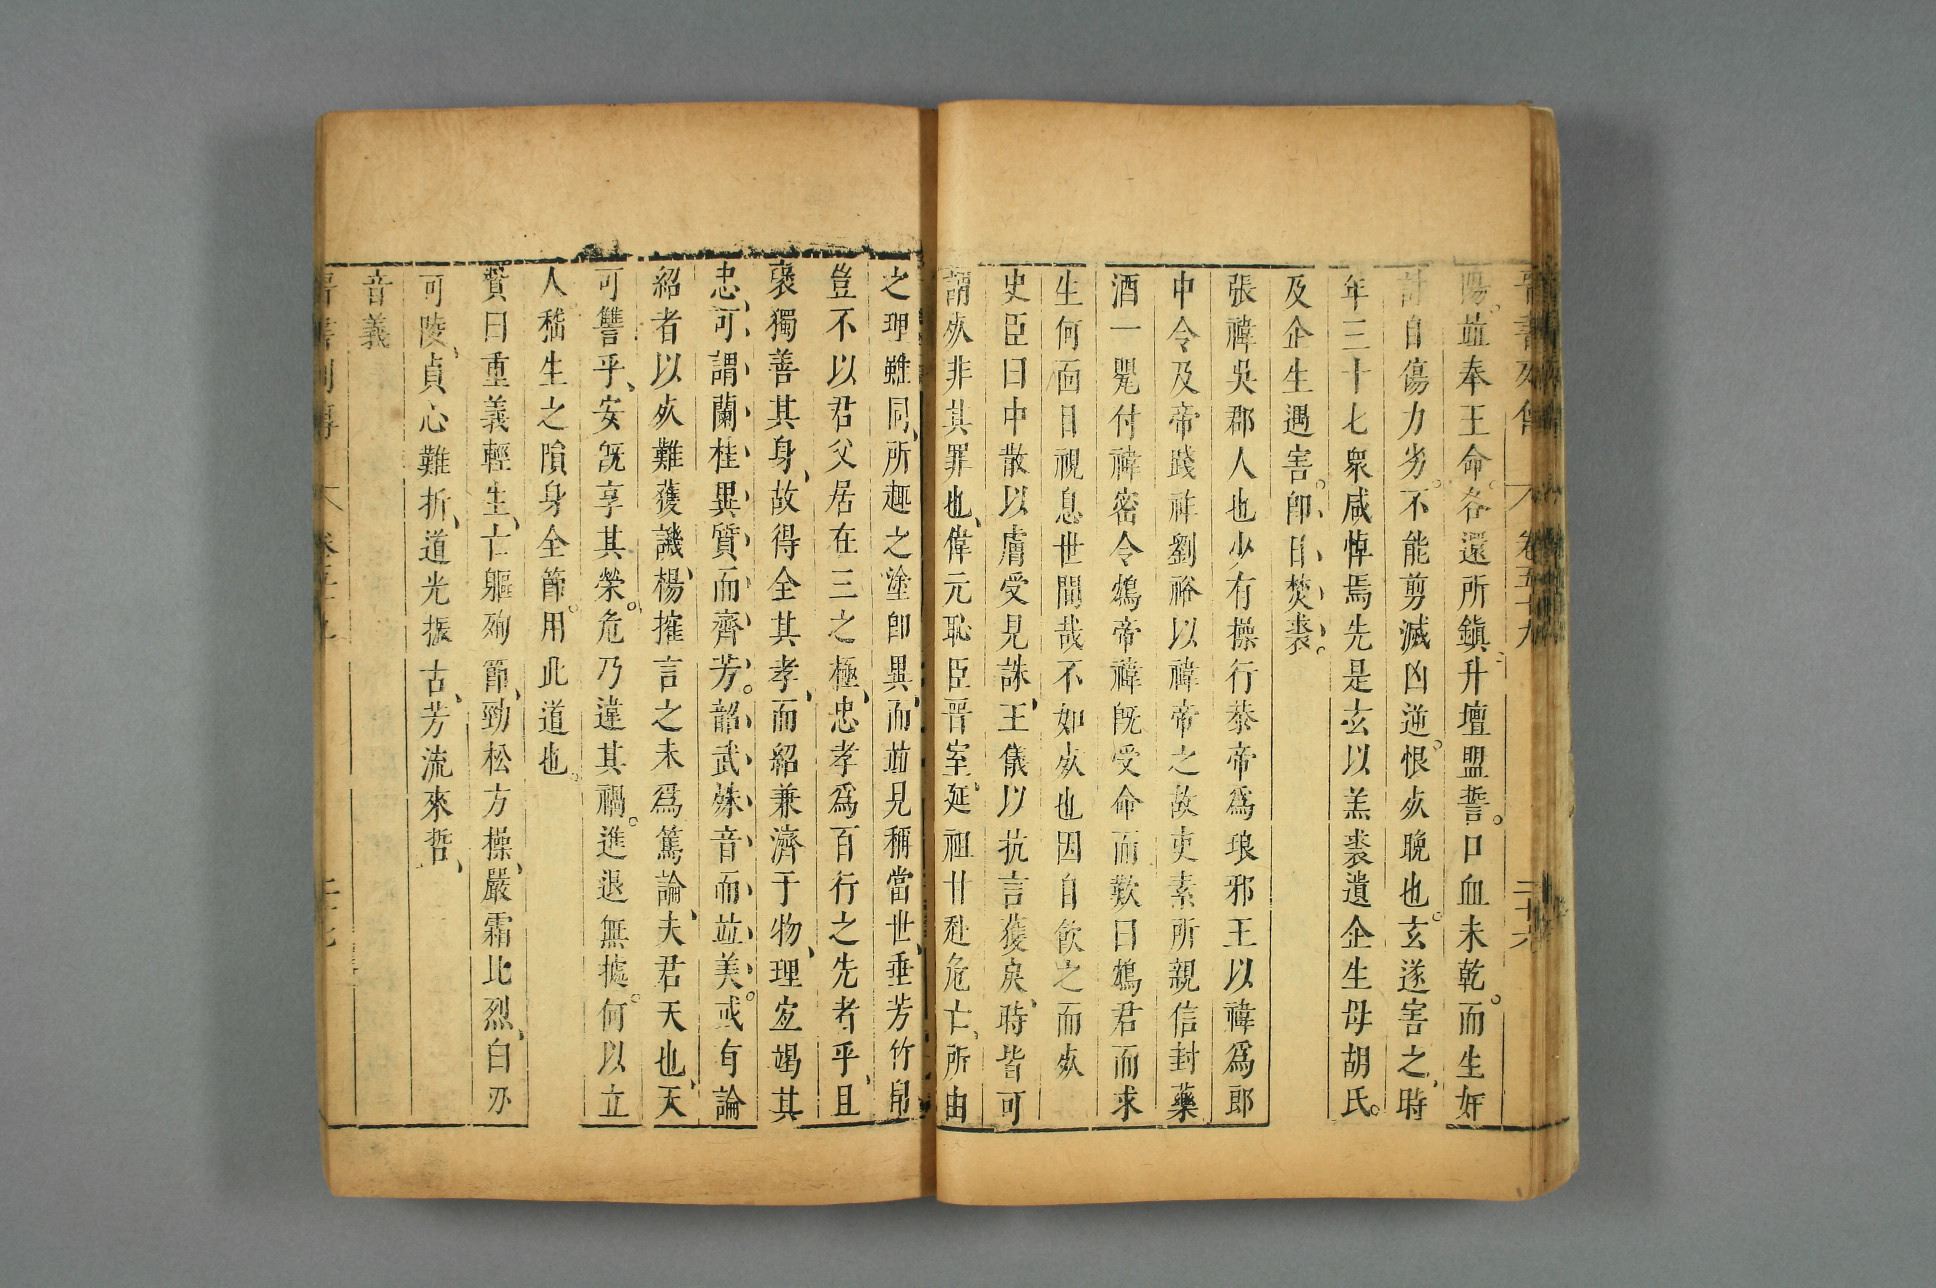 晉書列傳 卷五十九 二十六
陽。竝奉王命。各還所鎮。升壇盟誓。口血未乾。而生奸
計自傷力劣。不能剪滅凶逆。恨𣦸晚也。玄遂害之、時
年三十七衆咸悼焉先是玄以羔裘遺企生母胡氏。
及企生遇害。卽日焚裘。
張禕吳郡人也少有操行恭帝爲琅邪王以禕爲郎
中令及帝踐祚劉裕以禕帝之故吏素所親信封藥
酒一甖付禕密令鴆帝禕旣受命而歎曰鴆君而求
生何面目視息世間哉不如𣦸也因自飮之而𣦸
史臣曰中散以膚受見誅、王儀以抗言獲戾、時皆可
謂𣦸非其罪也、偉元恥臣晉室、延祖甘赴危亡、所由
之理雖同、所趣之塗卽異、而竝見稱當世、垂芳竹帛、
豈不以君父居在三之極、忠孝爲百行之先者乎、且
裒獨善其身、故得全其孝、而紹兼濟于物、理宜竭其
忠、可謂蘭桂異質而齊芳。韶武殊音而竝美。或有論
紹者以𣦸難獲譏、楊搉言之未爲篤論、夫君天也、天
可讐乎、安旣享其榮。危乃違其禍。進退無據。何以立
人嵇生之隕身全節。用此道也。
贊曰重義輕生、亡軀殉節、勁松方操、嚴霜比烈、白刃
可陵、貞心難折、道光振古、芳流來哲、
音義
晉書列傳 卷五十九 二十七